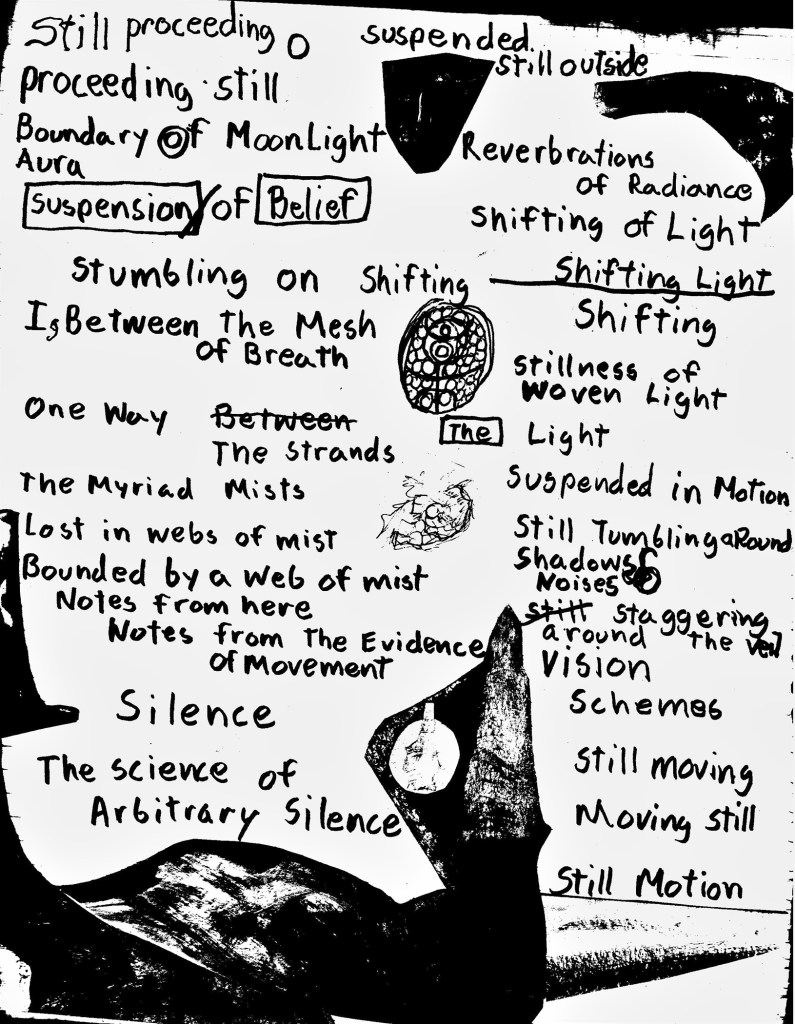 Still proceeding
proceeding still
Boundary of MoonLight
Aura
Suspension of Belief
Stumbling on Shifting
Is Between The Mesh
Of Breath
One Way Between
The Strands
The Myriad Mists
Lost in webs of mist
Bounded by a web of mist
Notes from here
Notes from The Evidence
of Movement
Silence
The science of
Arbitrary Silence
suspended.
still outside
Reverbrations
of Radiance
Shifting of Light
Shifting Light
Shifting
stillness of
Woven Light
The Light
Suspended in Motion
Still Tumbling around
Shadows of
Noises
still staggering
around the veil
Vision
Schemes
Still moving
Moving still
Still Motion